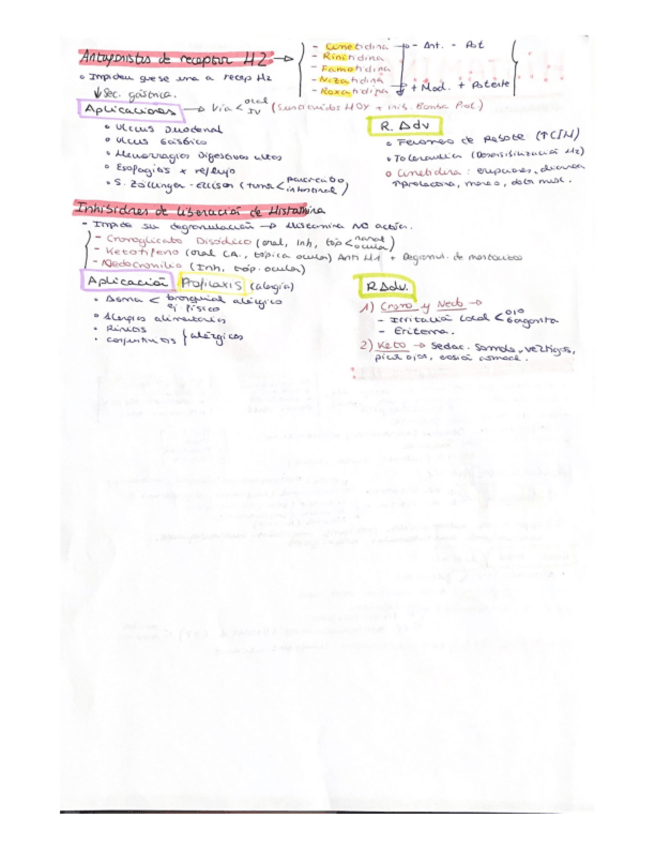 Antagonistas de receptor H2 →
- Cimetidina - Ant. - Pot
- Rinitidina
- Famotidina
- Nizatidina
- Roxatidina + Mod. + Potente
• Impiden que se una a recep H2
↓ Sec. gástrica.
Aplicaciones → Vía < oral IV (Sustituidos HOY x inib. Bomba Prot)
• Ulcus Duodenal
• Ulcus Gástrico
• Hemorragias Digestivas altas
• Esofagitis x reflujo
• S. Zollinger-ellison (tumor < pancreático, intestinal)
R. Adv
• Fenómeno de Rebote
• Tolerancia (Desensibilización H2)
• Cimetidina: erupciones, diarrea
↑prolactina, mareo, dolor musc.
Inhibidores de liberación de Histamina
- Impide su degranulación → Histamina NO actúa.
- Cromoglicato Disódico (oral, Inh, tóp < nasal ocular)
- Ketotifeno (oral, tópica ocular) Anti H1 + Degranul. de mastocitos
- Nedocromilo (Inh. tóp. ocular)
Aplicación Profilaxis (alergia)
• Asma < bronquial alérgico
ej físico
• Alergias alimentarias
• Rinitis
• conjuntivitis } alérgicas
R Adv.
1) Cromo y Nedo →
- Irritación local < ojo garganta
- Eritema.
2) Keto → sedac. Somnol, vértigos,
picor ojos,